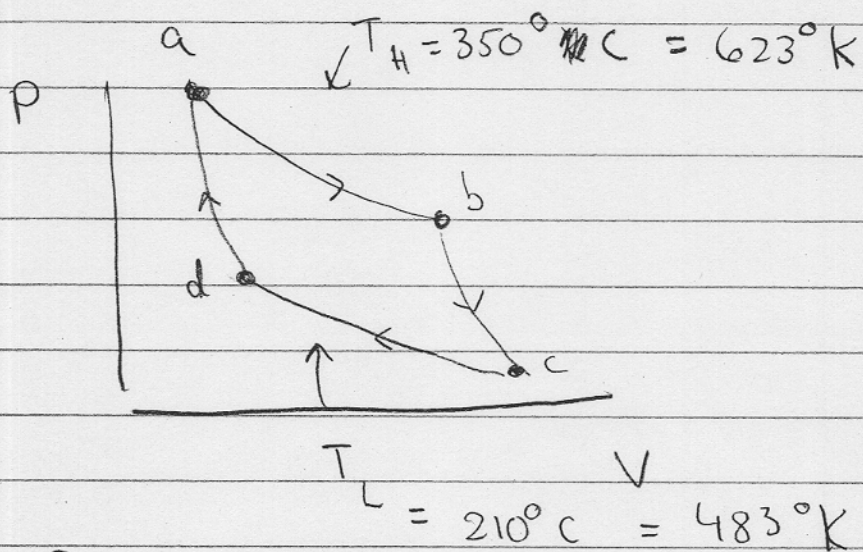 a
T_H = 350° C = 623° K
P
b
d
c
T_L
V
= 210° C = 483° K